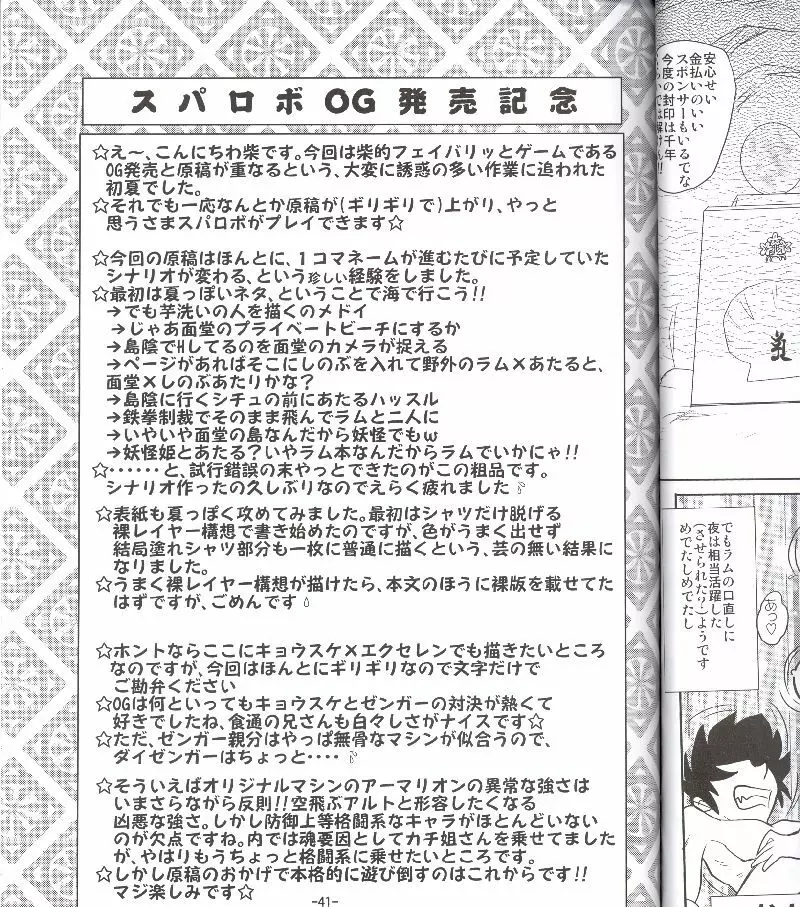 スパロボOG発売記念
☆え～、こんにちわ柴です。今回は柴的フェイバリッとゲームである
OG発売と原稿が重なるという、大変に誘惑の多い作業に追われた
初夏でした。
☆それでも一応なんとか原稿が(ギリギリで)上がり、やっと
思うさまスパロボがプレイできます☆
☆今回の原稿はほんとに、1コマネームが進むたびに予定していた
シナリオが変わる、という珍しい経験をしました。
☆最初は夏っぽいネタ、ということで海で行こう!!
→でも芋洗いの人を描くのメドイ
→じゃあ面堂のプライベートビーチにするか
→島陰でHしてるのを面堂のカメラが捉える
→ページがあればそこにしのぶを入れて野外のラム×あたると、
面堂×しのぶあたりかな?
→島陰に行くシチュの前にあたるハッスル
→鉄拳制裁でそのまま飛んでラムと二人に
→いやいや面堂の島なんだから妖怪でもω
→妖怪姫とあたる?いやラム本なんだからラムでいかにゃ!!
☆‥‥‥と、試行錯誤の末やっとできたのがこの粗品です。
シナリオ作ったの久しぶりなのでえらく疲れました
☆表紙も夏っぽく攻めてみました。最初はシャツだけ脱げる
裸レイヤー構想で書き始めたのですが、色がうまく出せず
結局塗れシャツ部分も一枚に普通に描くという、芸の無い結果に
なりました。
☆うまく裸レイヤー構想が描けたら、本文のほうに裸版を載せてた
はずですが、ごめんです
☆ホントならここにキョウスケ×エクセレンでも描きたいところ
なのですが、今回はほんとにギリギリなので文字だけで
ご勘弁ください
☆OGは何といってもキョウスケとゼンガーの対決が熱くて
好きでしたね、食通の兄さんも白々しさがナイスです☆
☆ただ、ゼンガー親分はやっぱ無骨なマシンが似合うので、
ダイゼンガーはちょっと‥‥
☆そういえばオリジナルマシンのアーマリオンの異常な強さは
いまさらながら反則!!空飛ぶアルトと形容したくなる
凶悪な強さ。しかし防御上等格闘系なキャラがほとんどいない
のが欠点ですね。内では魂要因としてカチ姐さんを乗せてました
が、やはりもうちょっと格闘系に乗せたいところです。
☆しかし原稿のおかげで本格的に遊び倒すのはこれからです!!
マジ楽しみです☆
-41-
安心せい
金払いのいい
スポンサーもいるでな
今度の封印は千年
でもラムの口直しに
夜は相当活躍した
(させられた?)ようです
めでたしめでたし
あっ♡